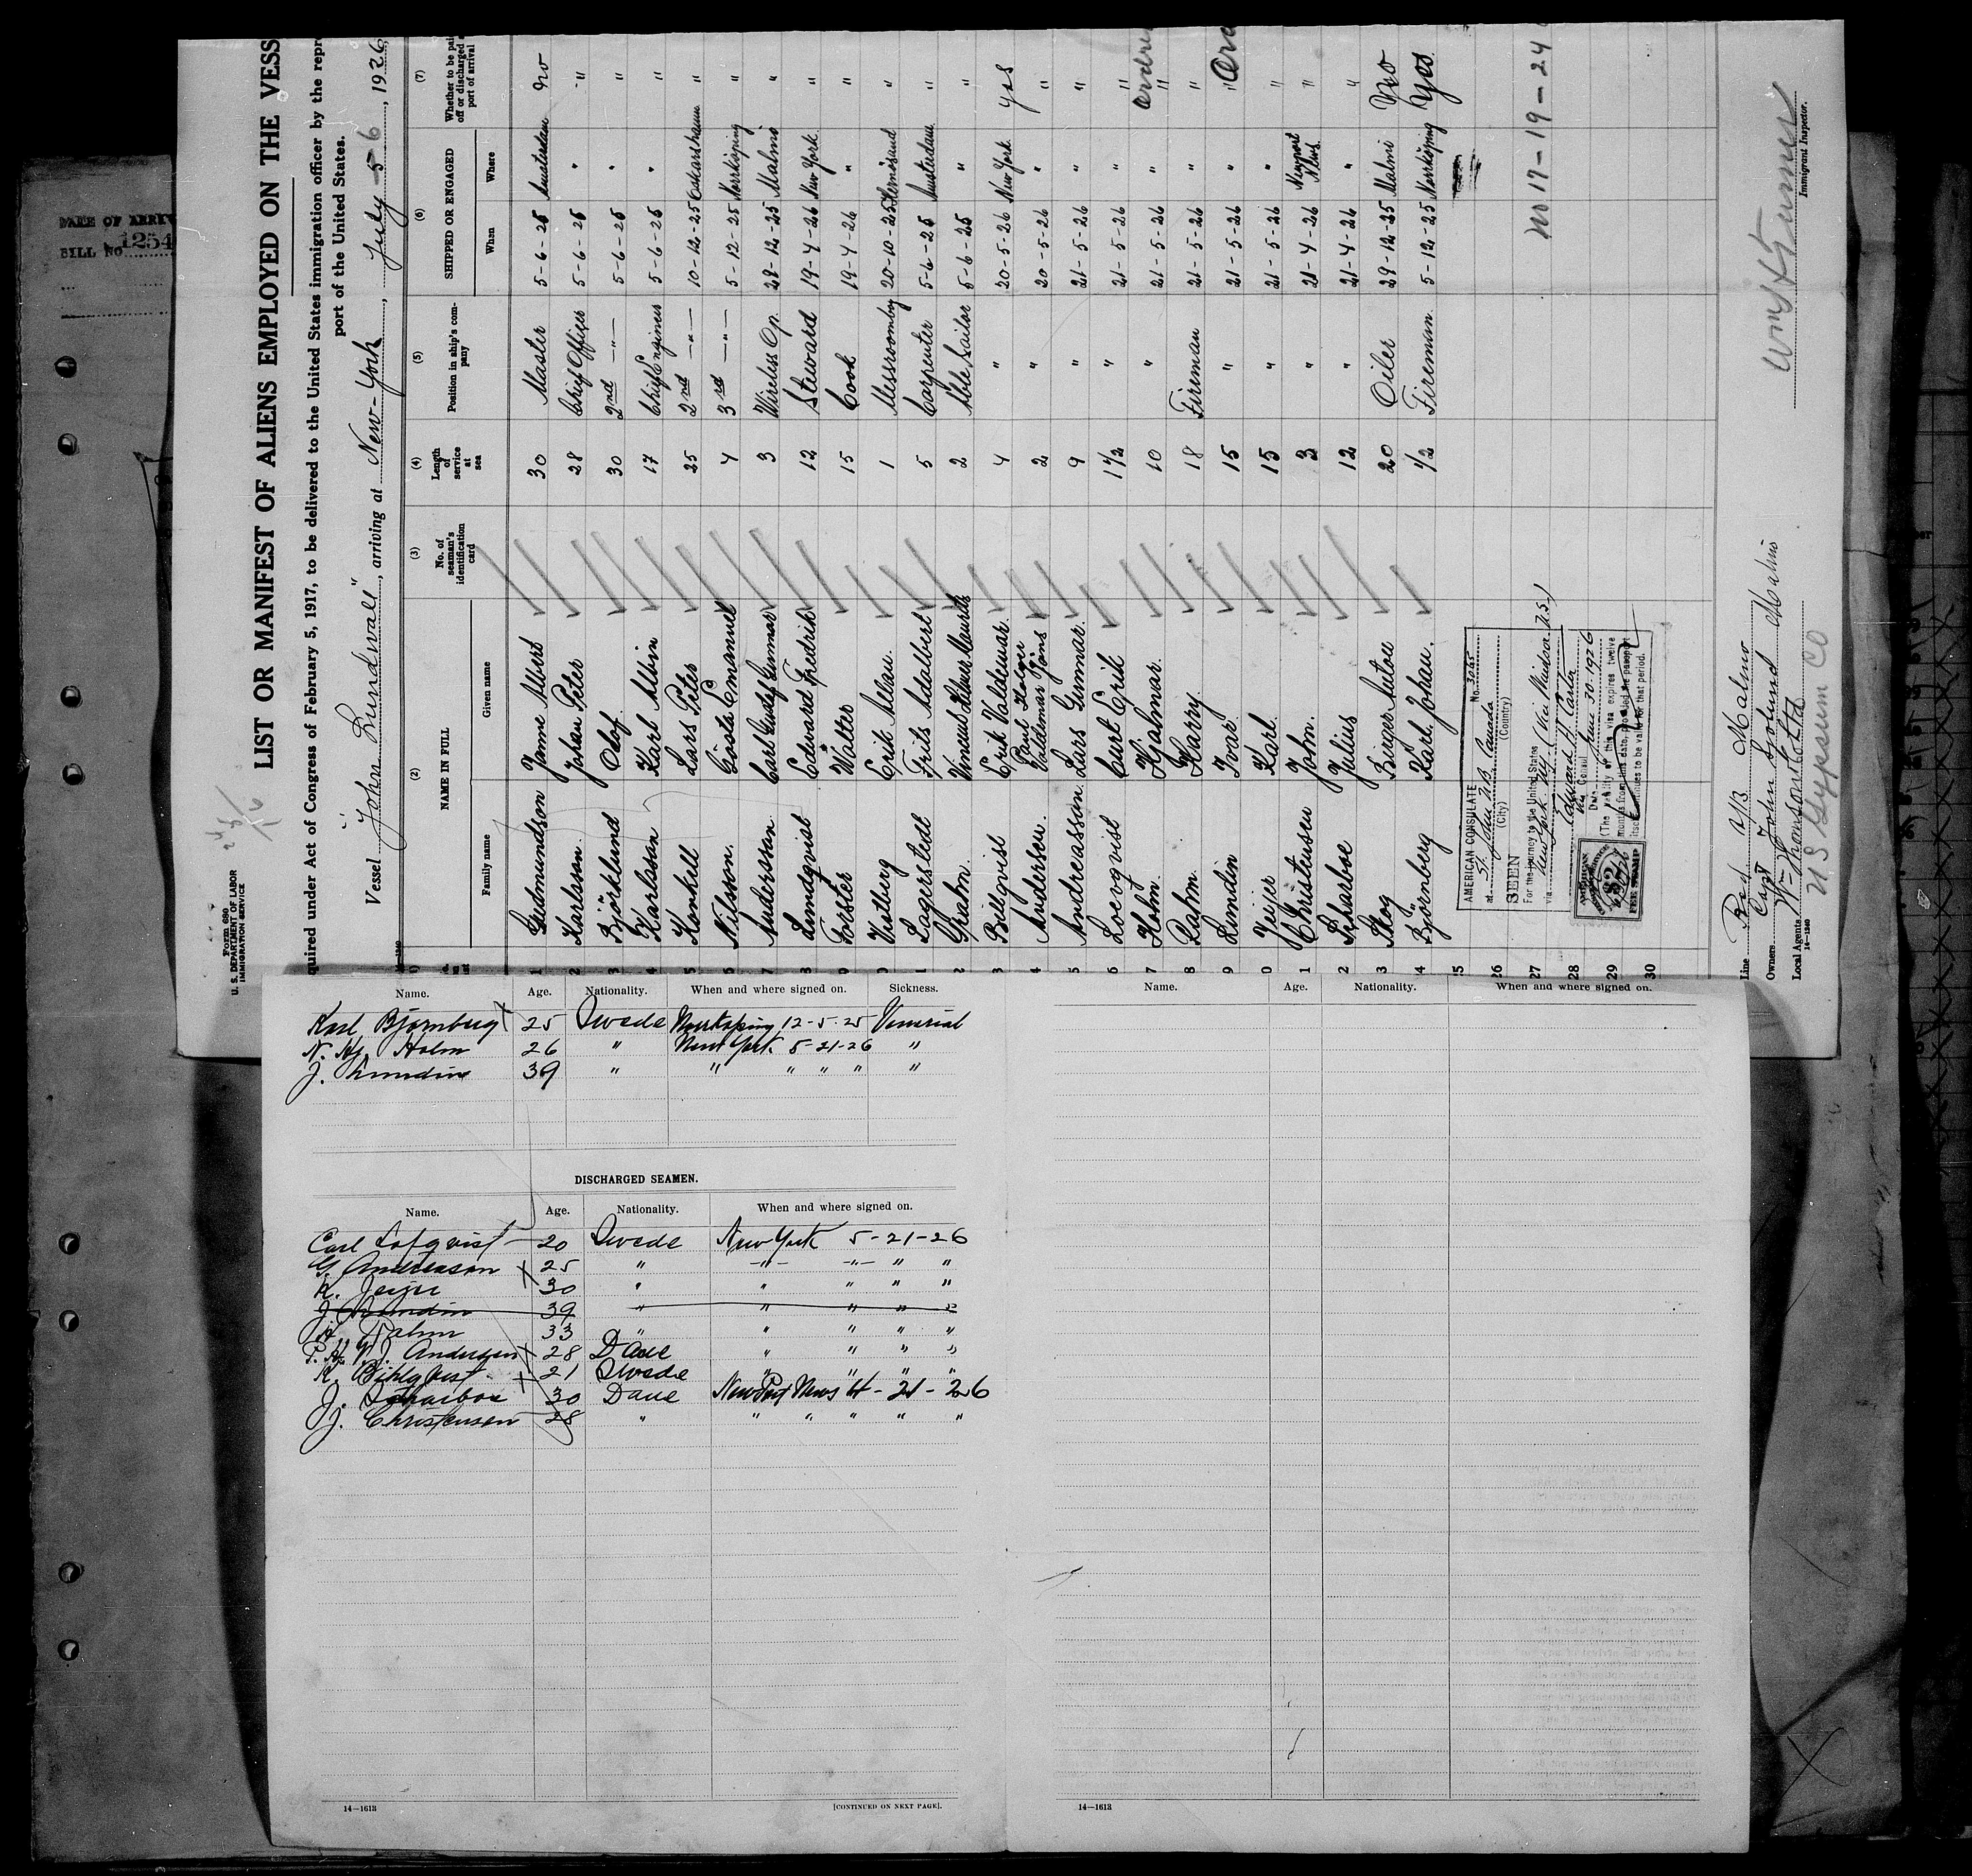 Form 680
U. S. DEPARTMENT OF LABOR
IMMIGRATION SERVICE
LIST OR MANIFEST OF ALIENS EMPLOYED ON THE VESS
quired under Act of Congress of February 5, 1917, to be delivered to the United States immigration officer by the repr
port of the United States.
Vessel "John Lundvall", arriving at New-York, July 5-6, 1926
(2) (3) (4) (5) (6) (7)
NAME IN FULL No. of seaman's identification card Length of service at sea Position in ship's company SHIPPED OR ENGAGED Whether to be paid off or discharged at port of arrival
Family name Given name When Where
1 Gudmundson Janne Albert 30 Master 5-6-25 Amsterdam No
2 Karlsson Johan Peter 28 Chief Officer 5-6-25 " "
3 Björklund Olof 30 2nd -"- 5-6-25 " "
4 Karlsson Karl Albin 17 Chief Engineer 5-6-25 " "
5 Konkell Lars Peter 25 2nd -"- 10-12-25 Oskarshamn "
6 Nilsson Gösta Emanuel 4 3rd -"- 5-12-25 Norrköping "
7 Andersson Carl Gustaf Gunnar 3 Wireless Op. 28-12-25 Malmö "
8 Lundqvist Edvard Fredrik 12 Steward 19-4-26 New York "
9 Forster Walter 15 Cook 19-4-26 " "
0 Vistberg Erik Allan 1 Messroomboy 20-10-25 Hernösand "
1 Lagerstedt Frits Adalbert 5 Carpenter 5-6-25 Amsterdam "
2 Grahm Verner Hilmer Maurits 2 Able Sailor 5-6-25 " "
3 Billqvist Erik Valdemar 4 " 20-5-26 New York Yes
4 Andersen Paul Holger Valdemar Jöns 2 " 20-5-26 " "
5 Andreasson Lars Gunnar 9 " 21-5-26 " "
6 Loevqvist Curt Erik 1 1/2 " 21-5-26 " "
7 Holm Hjalmar 10 " 21-5-26 " "
8 Palm Harry 18 Fireman 21-5-26 " "
9 Lundin Ivar 15 " 21-5-26 " "
0 Jeijer Karl 15 " 21-5-26 " "
1 Christensen John 3 " 21-4-26 Newport News "
2 Scharboe Julius 12 " 21-4-26 " "
3 Skog Birger Anton 20 Oiler 29-12-25 Malmö No
4 Björnberg Karl Johan 1/2 Fireman 5-12-25 Norrköping Yes
25
26
27
28
29
30
No 17-19-24
AMERICAN CONSULATE
at St. John N B Canada No. 3065
(City) (Country)
SEEN
For the journey to the United States
via New York
Edward A.
Vice Consul
Date June 30-1926
(The validity of this visa expires twelve
months from this date, provided the passport
continues to be valid for that period.
$2
FEE STAMP
Line Red A/B Malmö
Owners Capt John Malmö
Local Agents
U S Gypsum Co
14-1240
Immigrant Inspector.
DATE OF ARRIV
BILL NO 1254
Name. Age. Nationality. When and where signed on. Sickness.
Karl Bjornberg 25 Swede Norrkoping 12-5-25 Venerial
N. Hj. Holm 26 " New York 5-21-26 "
J. Lundin 39 " " " " " "
DISCHARGED SEAMEN.
Name. Age. Nationality. When and where signed on.
Carl Lofqvist 20 Swede New York 5-21-26
G. Andreason 25 " -"- -"- " "
K. Jeijer 30 " " " " "
J. Lundin 39 " " " " "
H. Palm 33 " " " " "
P. H. V. J. Andersen 28 Dane " " " "
K. Billqvist 21 Swede " " " "
J. Scharboe 30 Dane New Port News 4-21-26
J. Christensen 28 " " " " " "
14—1613 [CONTINUED ON NEXT PAGE].
Name. Age. Nationality. When and where signed on.
14—1613